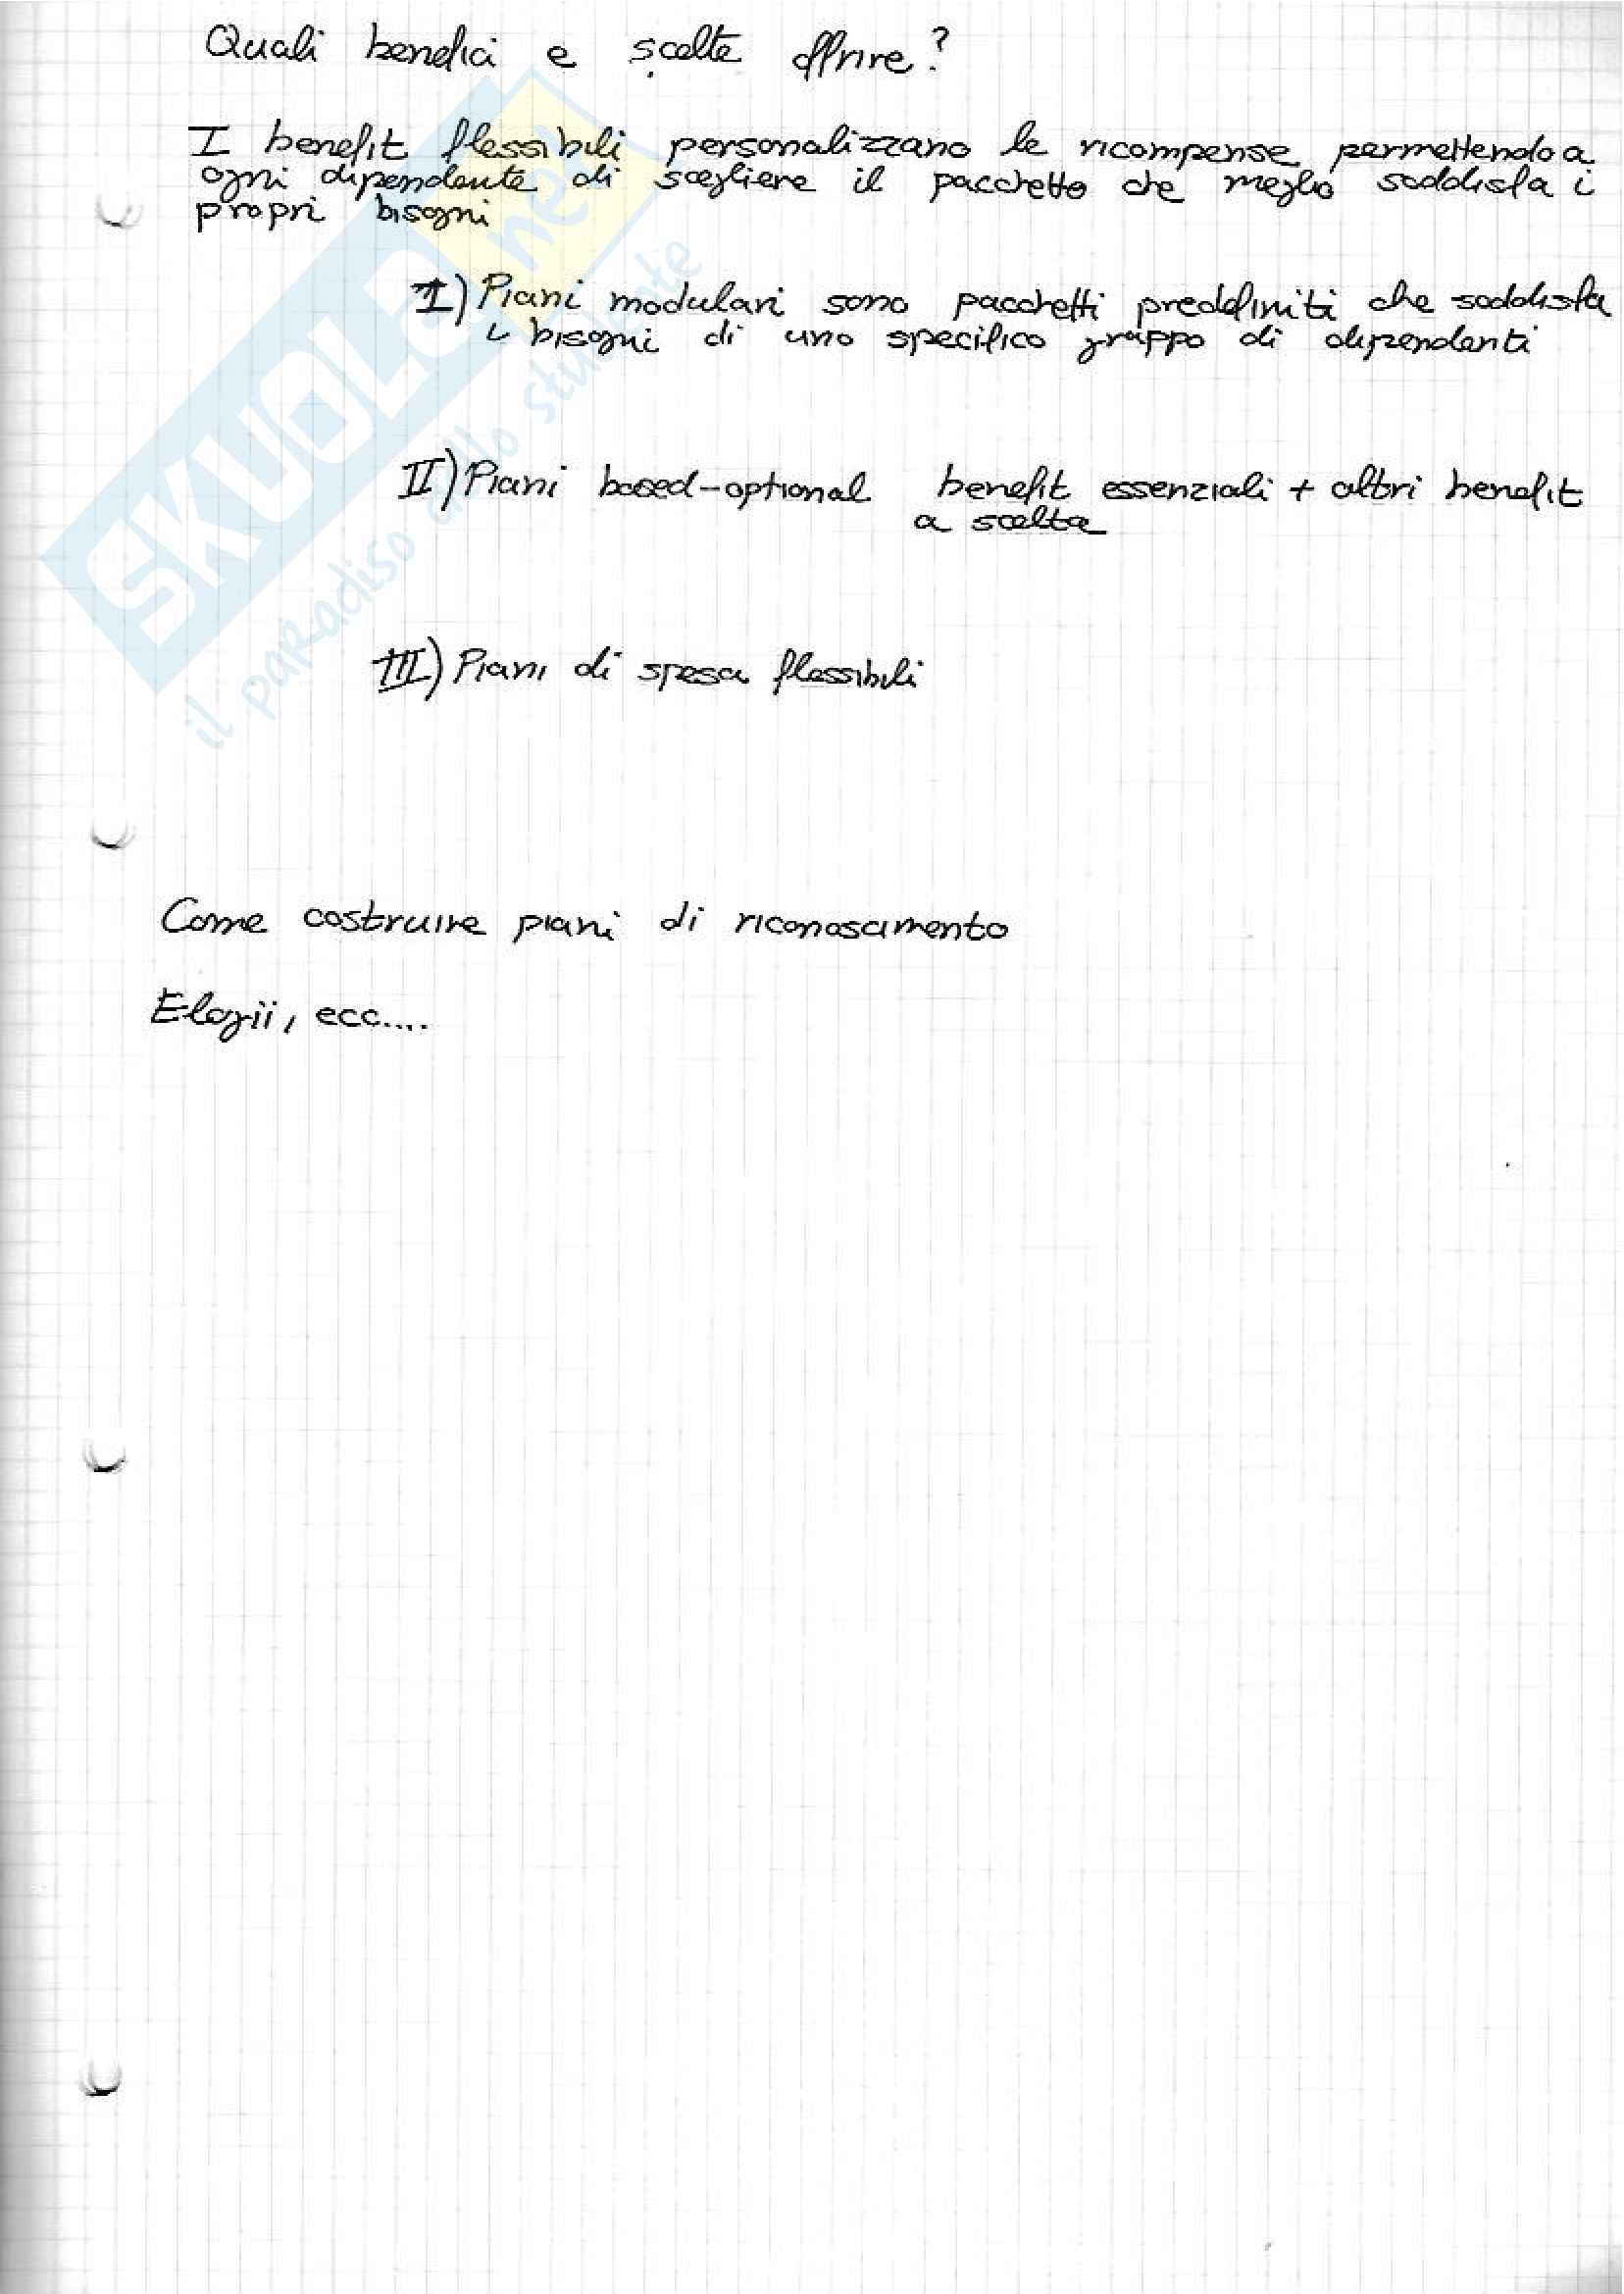 Quali benefici e scelte offrire?
I benefit flessibili personalizzano le ricompense permettendo a
ogni dipendente di scegliere il pacchetto che meglio soddisfa i
propri bisogni
I) Piani modulari sono pacchetti predefiniti che soddisfa
i bisogni di uno specifico gruppo di dipendenti
II) Piani based-optional benefit essenziali + altri benefit
a scelta
III) Piani di spesa flessibili
Come costruire piani di riconoscimento
Elogii, ecc....
SKUOLA.net
il paradiso dello studente